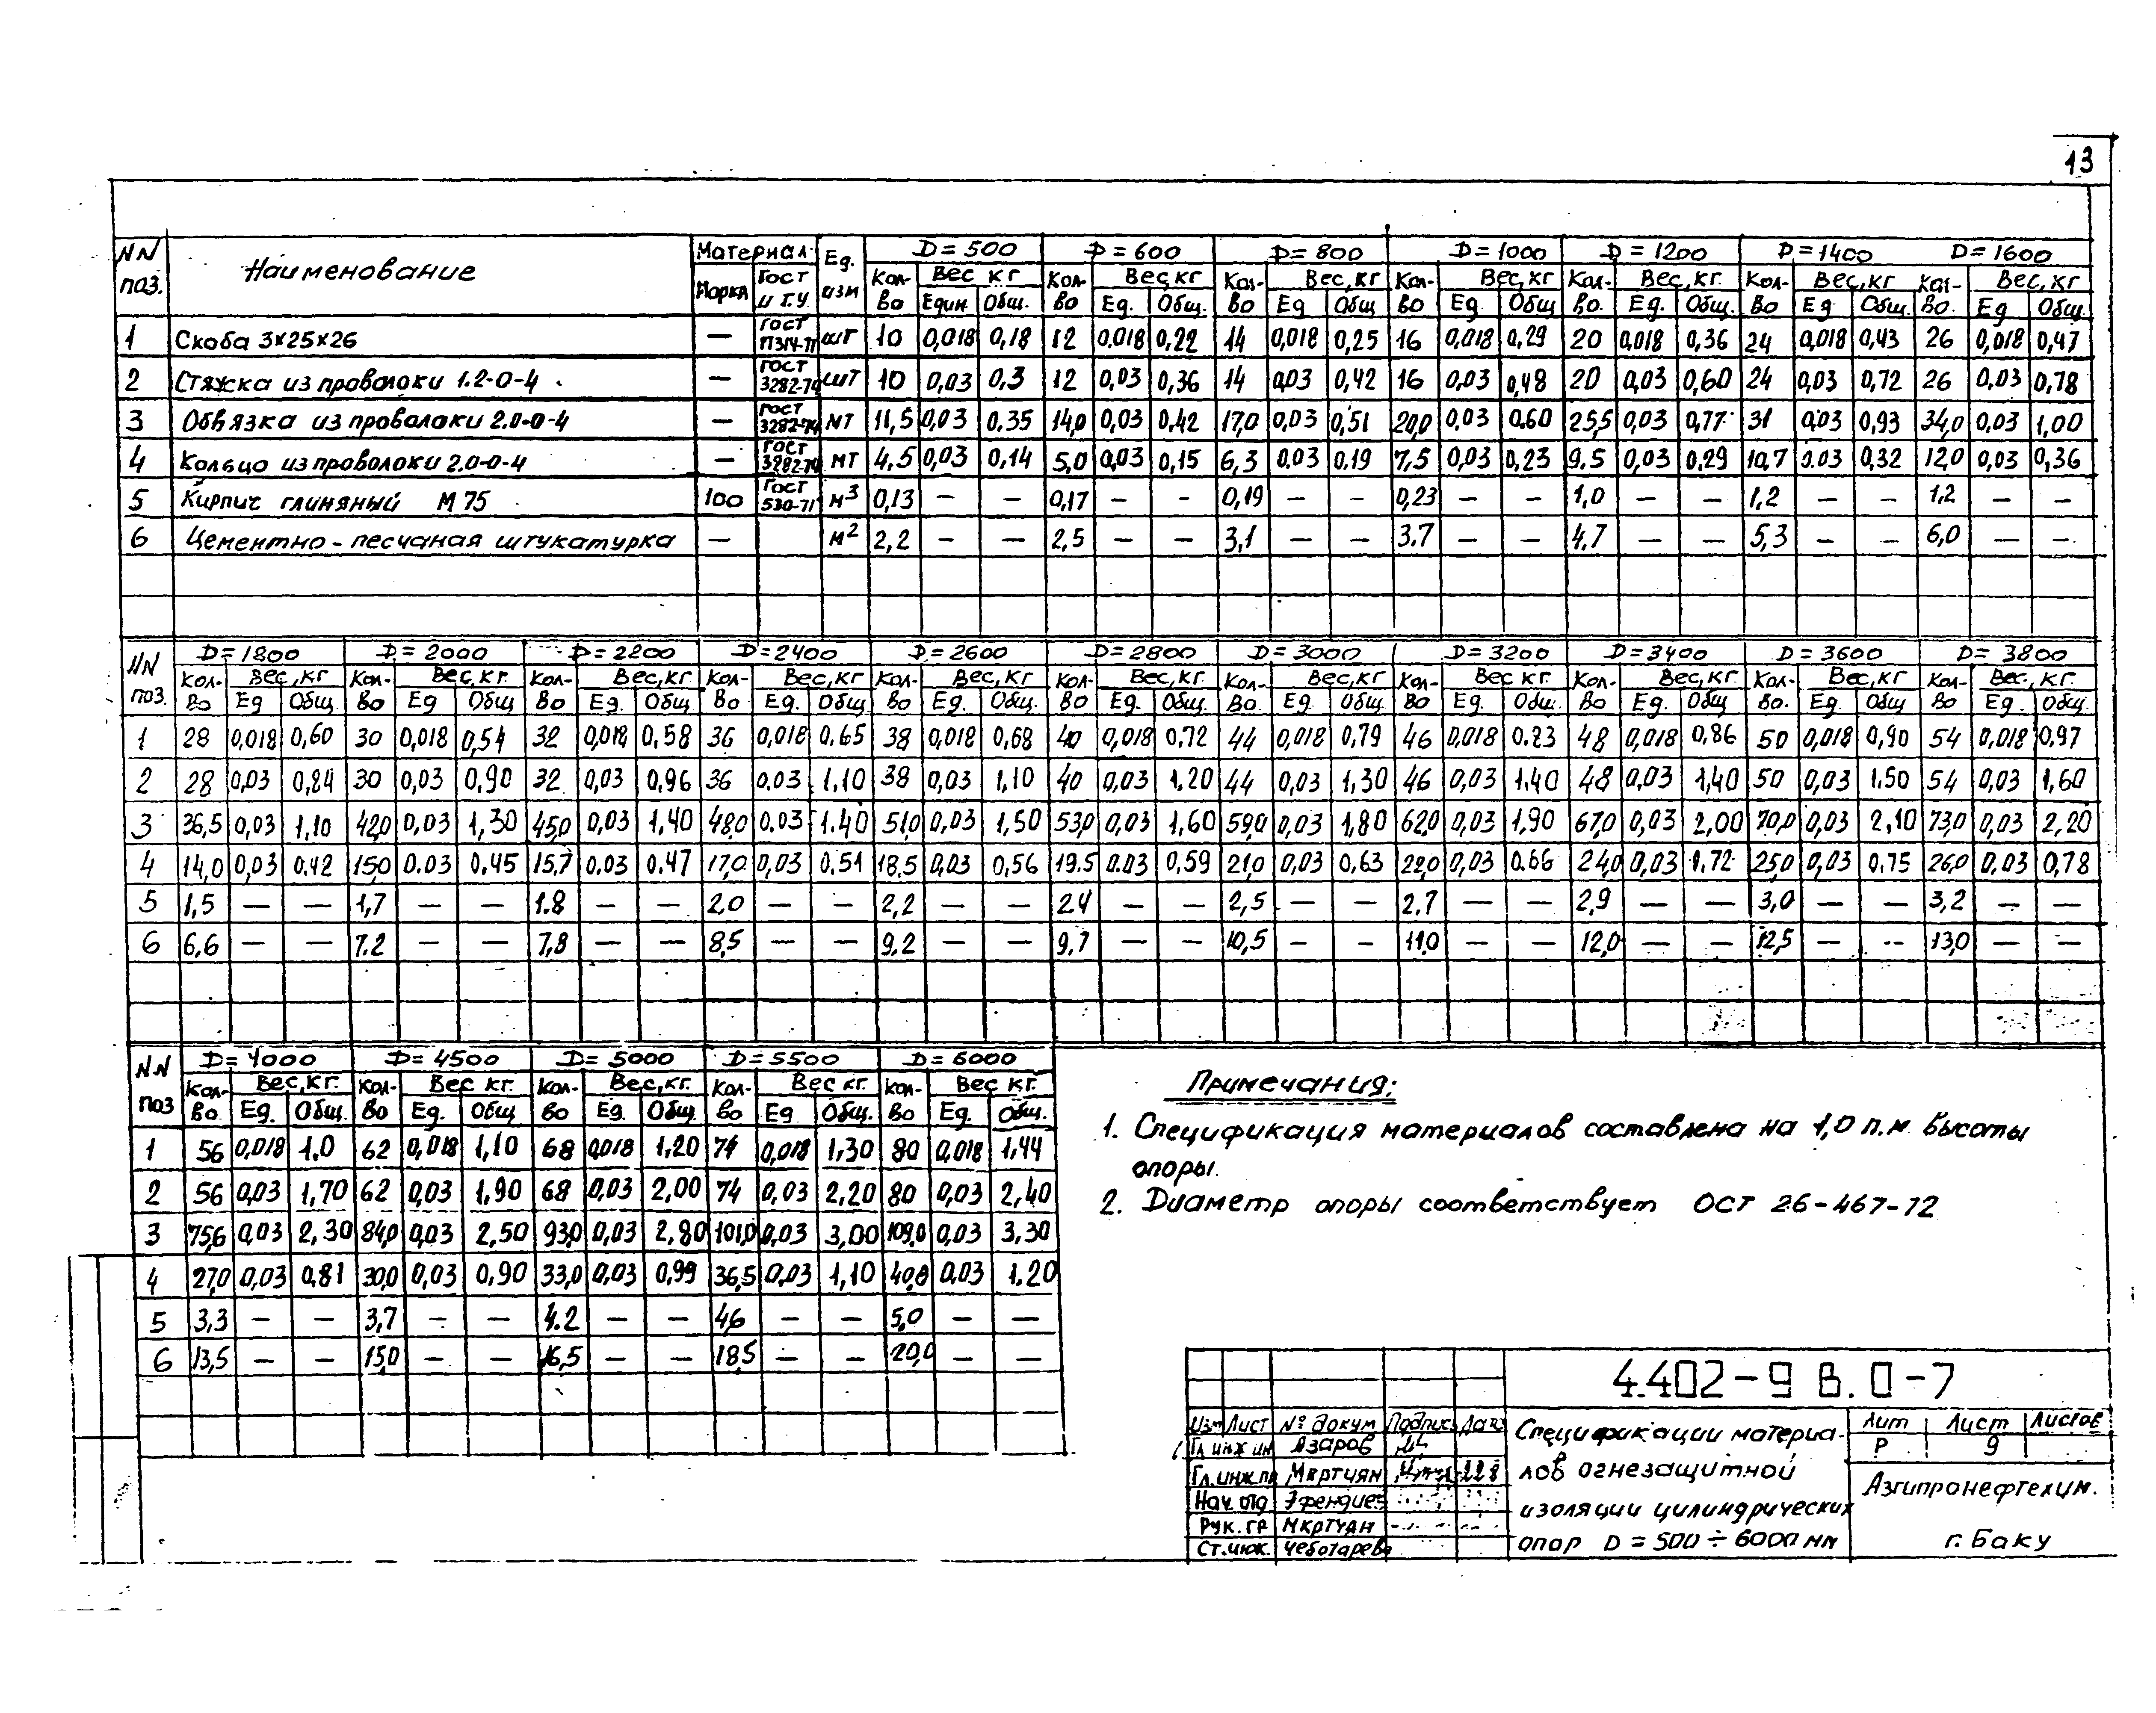 13
NN поз. Наименование Материал Марка ГОСТ и Т.У. Ед. изм D=500 D=600 D=800 D=1000 D=1200 D=1400 D=1600
Кол-во Вес кг Един Общ. Кол-во Вес, кг Ед. Общ. Кол-во Вес, кг Ед Общ Кол-во Вес, кг Ед. Общ Кол-во. Вес, кг. Ед. Общ. Кол-во Вес, кг Ед Общ. Кол-во. Вес, кг Ед Общ
1 Скоба 3х25х26 — ГОСТ шт 10 0,018 0,18 12 0,018 0,22 14 0,018 0,25 16 0,018 0,29 20 0,018 0,36 24 0,018 0,43 26 0,018 0,47
2 Стяжка из проволоки 1.2-0-4 — ГОСТ 3282-74 шт 10 0,03 0,3 12 0,03 0,36 14 0,03 0,42 16 0,03 0,48 20 0,03 0,60 24 0,03 0,72 26 0.03 0,78
3 Обвязка из проволоки 2.0-0-4 — ГОСТ 3282-74 МТ 11,5 0,03 0.35 14,0 0,03 0,42 17,0 0,03 0,51 20,0 0.03 0.60 25,5 0,03 0,77 31 0,03 0,93 34,0 0,03 1,00
4 Кольцо из проволоки 2.0-0-4 — ГОСТ 3282-74 МТ 4,5 0,03 0,14 5,0 0,03 0,15 6,3 0.03 0.19 7,5 0,03 0,23 9.5 0,03 0,29 10,7 0.03 0,32 12,0 0,03 0,36
5 Кирпич глиняный М 75 100 ГОСТ 530-71 м3 0,13 — — 0,17 — — 0,19 — — 0,23 — — 1,0 — — 1,2 — — 1,2 — —
6 Цементно-песчаная штукатурка — м2 2,2 — — 2,5 — — 3,1 — — 3.7 — — 4,7 — — 5,3 — — 6,0 — —
NN поз. D=1800 D=2000 D=2200 D=2400 D=2600 D=2800 D=3000 D=3200 D=3400 D=3600 D=3800
Кол-во Вес, кг Ед Общ. Кол-во Вес, кг. Ед Общ Кол-во Вес, кг Ед. Общ Кол-во Вес, кг Ед. Общ. Кол-во Вес, кг Ед. Общ. Кол-во Вес, кг. Ед. Общ. Кол-во. Вес, кг Ед. Общ. Кол-во Вес кг. Ед. Общ. Кол-во Вес, кг Ед. Общ Кол-во. Вес, кг Ед. Общ Кол-во Вес, кг. Ед. Общ.
1 28 0,018 0,60 30 0,018 0,54 32 0,018 0,58 36 0,018 0.65 38 0,018 0,68 40 0,018 0.72 44 0,018 0,79 46 0,018 0.83 48 0,018 0,86 50 0,018 0,90 54 0,018 0.97
2 28 0,03 0,84 30 0,03 0,90 32 0,03 0,96 36 0.03 1,10 38 0,03 1,10 40 0,03 1,20 44 0,03 1,30 46 0,03 1.40 48 0,03 1,40 50 0,03 1,50 54 0,03 1,60
3 36,5 0,03 1,10 42,0 0,03 1,30 45,0 0,03 1,40 48,0 0.03 1.40 51,0 0,03 1,50 53,0 0,03 1,60 59,0 0,03 1,80 62,0 0,03 1,90 67,0 0,03 2,00 70,0 0,03 2,10 73,0 0,03 2,20
4 14,0 0,03 0.42 15,0 0.03 0.45 15,7 0.03 0.47 17,0 0,03 0,51 18,5 0,03 0,56 19.5 0.03 0,59 21,0 0,03 0,63 22,0 0,03 0.66 24,0 0,03 1,72 25,0 0,03 0,75 26,0 0.03 0,78
5 1,5 — — 1,7 — — 1.8 — — 2.0 — — 2,2 — — 2.4 — — 2,5 — — 2.7 — — 2,9 — — 3,0 — — 3,2 — —
6 6,6 — — 7.2 — — 7,8 — — 8,5 — — 9,2 — — 9,7 — — 10,5 — — 11,0 — — 12,0 — — 12,5 — — 13,0 — —
NN поз D=4000 D=4500 D=5000 D=5500 D=6000
Кол-во. Вес, кг. Ед. Общ. Кол-во Вес кг. Ед. Общ Кол-во Вес, кг. Ед. Общ. Кол-во Вес кг. Ед. Общ. Кол-во Вес кг. Ед. Общ.
1 56 0,018 1.0 62 0,018 1,10 68 0,018 1,20 74 0,018 1,30 80 0,018 1,44
2 56 0,03 1,70 62 0,03 1,90 68 0,03 2,00 74 0,03 2,20 80 0,03 2,40
3 75,6 0,03 2,30 84,0 0,03 2,50 93,0 0,03 2,80 101,0 0,03 3,00 109,0 0,03 3,30
4 27,0 0,03 0,81 30,0 0,03 0,90 33,0 0,03 0,99 36,5 0,03 1,10 40,8 0,03 1.20
5 3,3 — — 3,7 — — 4.2 — — 4,6 — — 5,0 — —
6 13,5 — — 15,0 — — 16,5 — — 18,5 — — 20,0 — —
Примечания:
1. Спецификация материалов составлена на 1,0 п.м высоты
опоры.
2. Диаметр опоры соответствует ОСТ 26-467-72
4.402-9 В.0-7
Изм Лист № докум Подпись Дата
Гл инж ин Азаров
Гл.инж.пр Мкртчян
Нач. отд Эфендиев
Рук. гр Мкртчян
Ст.инж. Чеботарева
Спецификации материа-
лов огнезащитной
изоляции цилиндрических
опор D = 500 ÷ 6000 мм
Лит Лист Листов
Р 9
Азгипронефтехим.
г. Баку